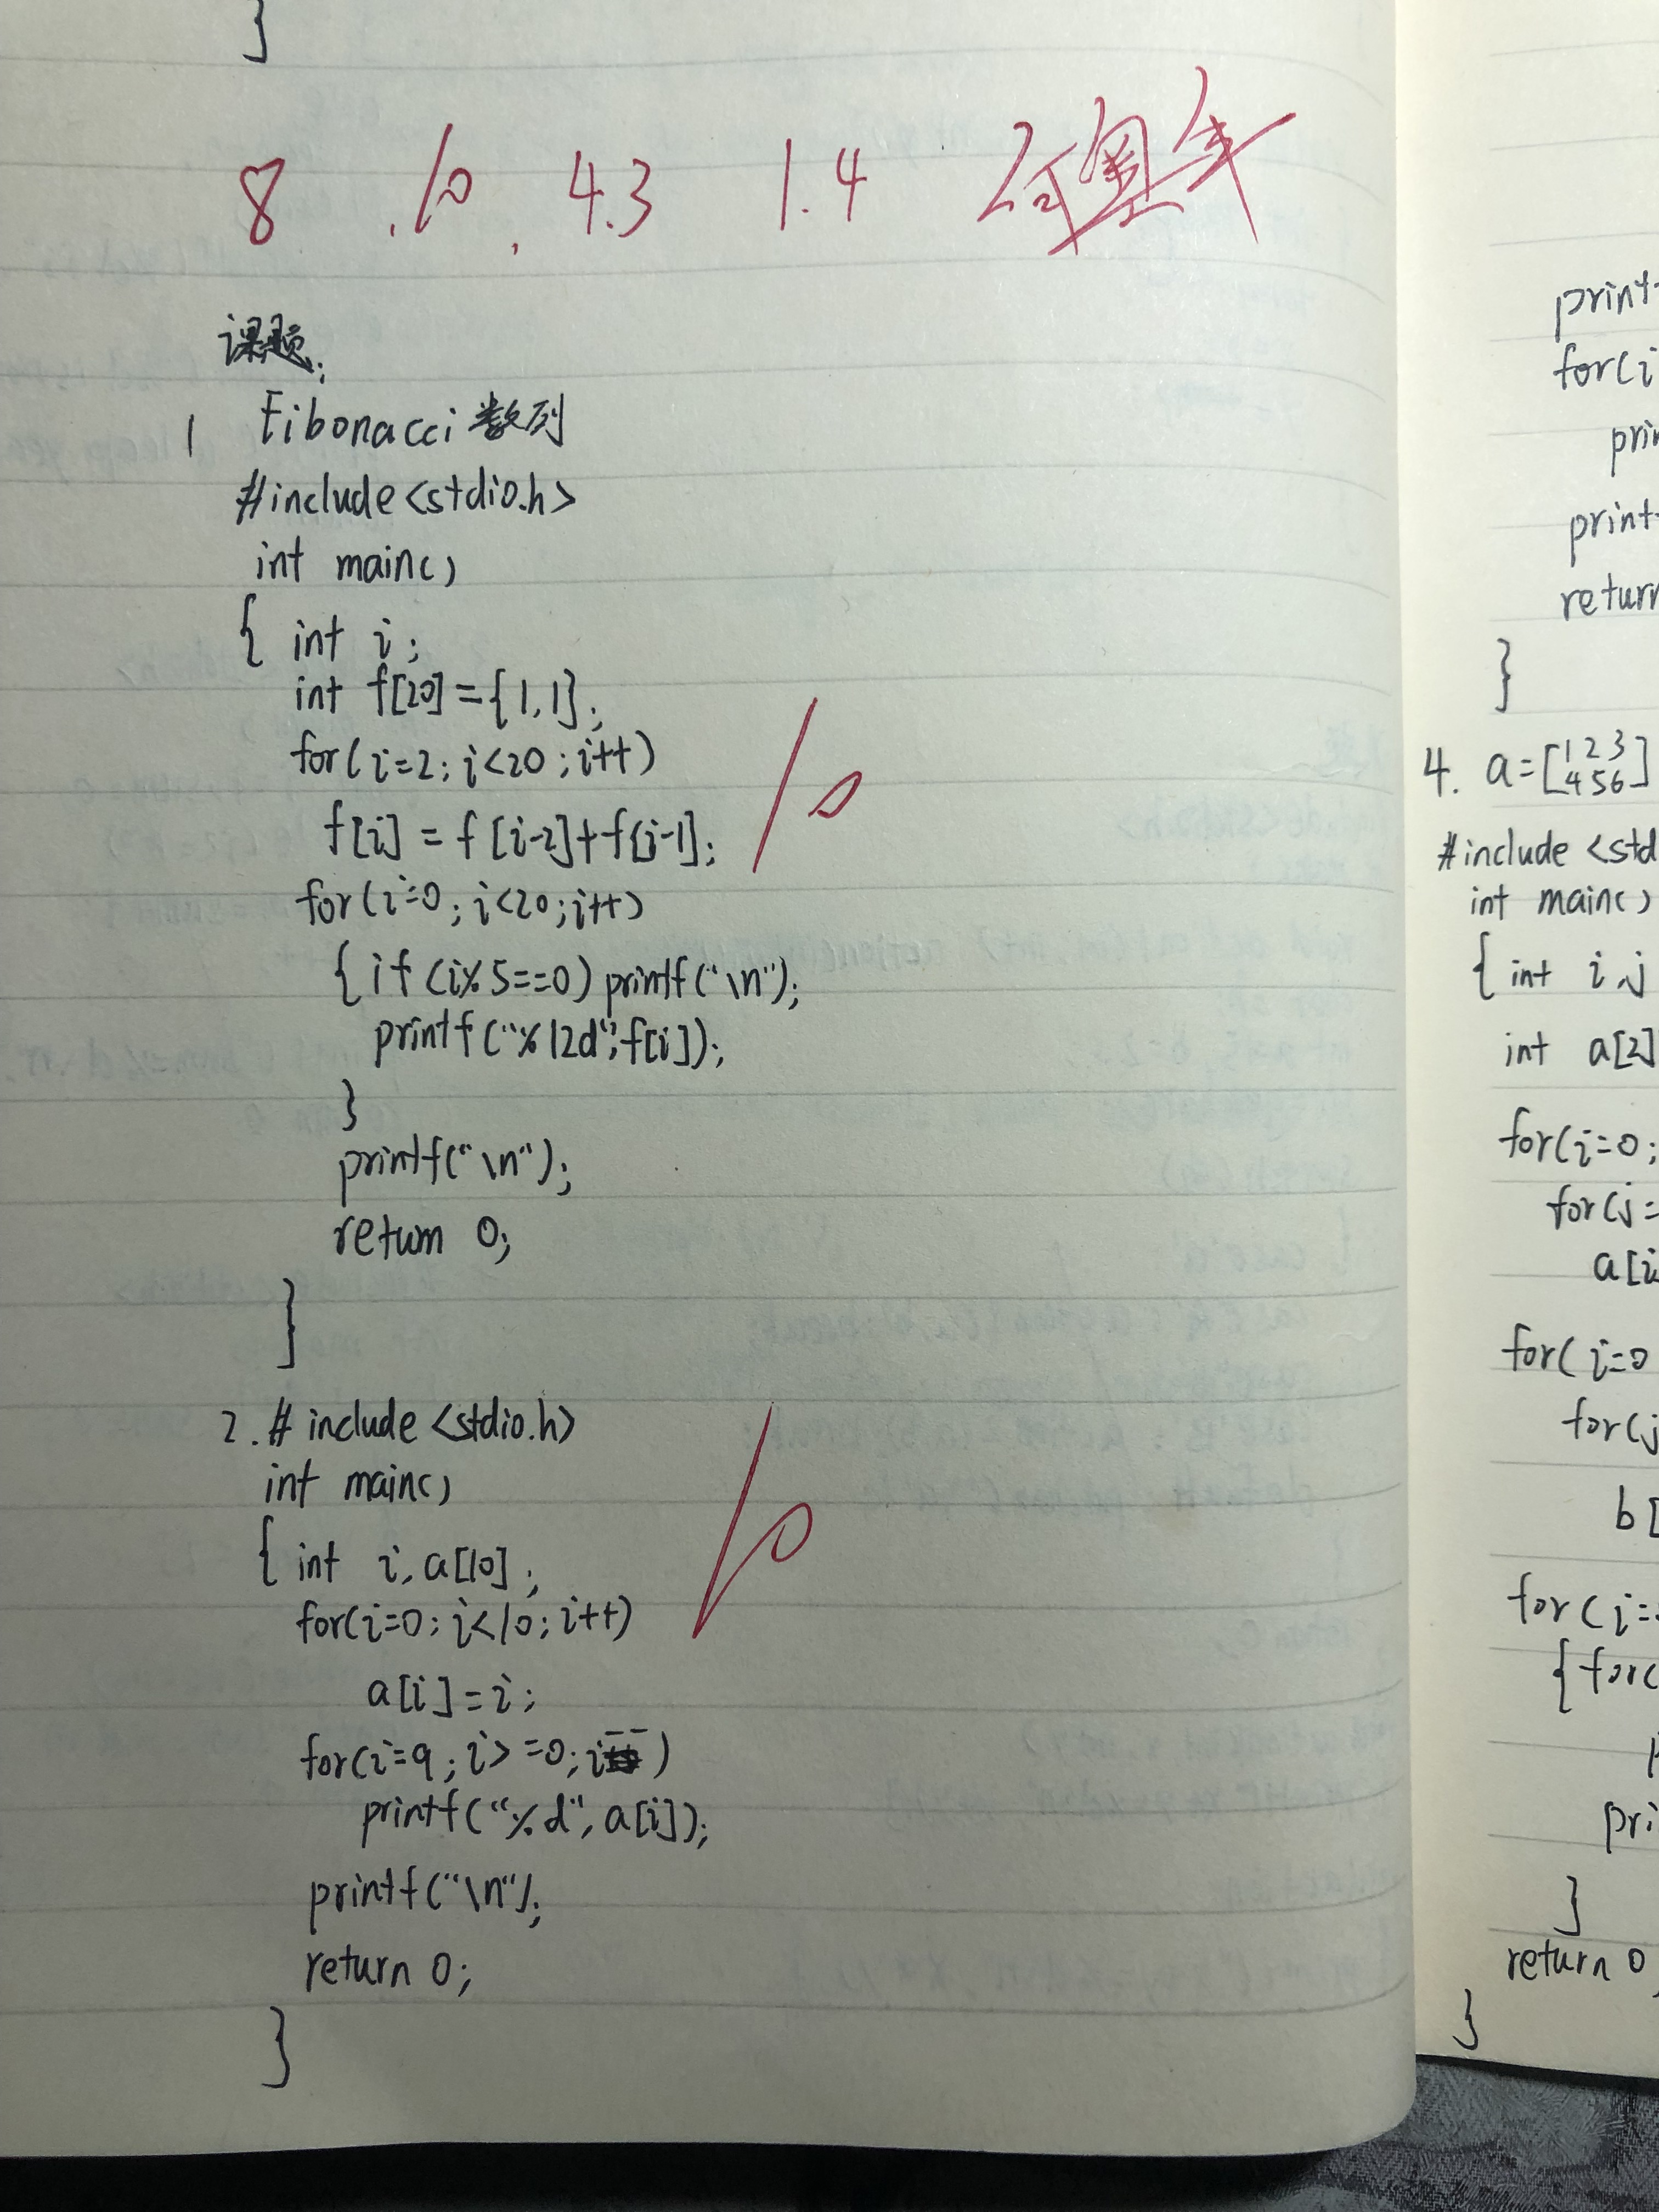 }
8 10 4.3 1.4
课题:
1 Fibonacci 数列
#include<stdio.h>
int main()
{ int i;
int f[20]={1,1};
for(i=2;i<20;i++)
f[i]=f[i-2]+f[i-1];
10
for(i=0;i<20;i++)
{if(i%5==0)printf("\n");
printf("%12d",f[i]);
}
printf("\n");
return 0;
}
2.#include<stdio.h>
int main()
{ int i,a[10];
for(i=0;i<10;i++)
10
a[i]=i;
for(i=9;i>=0;i--)
printf("%d",a[i]);
printf("\n");
return 0;
}
print
for(i
prin
print
return
}
4. a=[1 2 3
4 5 6]
#include<std
int main()
{int i,j
int a[2]
for(i=0;
for(j=
a[i
for(i=0
for(j
b[
for(i=
{for(
pri
}
return 0
}